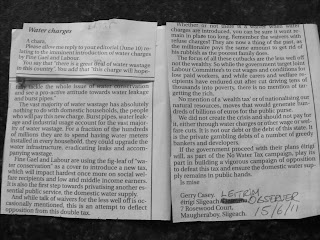 Water charges
A chara,
Please allow me reply to your editorial (June 10) re-
lating to the imminent introduction of water charges
by Fine Gael and Labour.
You say that "there is a great deal of wastage of water
in this country". You add that "this charge will hope-
tackle the whole issue of water conservation
and see a pro-active attitude towards water leakage
and burst pipes."
The vast majority of water wastage has absolutely
nothing to do with domestic households, the people
who will pay this new charge. Burst pipes, water leak-
age and industrial usage account for the vast major-
ity of water wastage. For a fraction of the hundreds
of millions they are to spend having water meters
installed in every household, they could upgrade the
water infrastructure, eradicating leaks and accom-
panying wastage.
Fine Gael and Labour are using the fig-leaf of "wa-
ter conservation" as a cover to introduce a new tax,
which will impact hardest once more on social wel-
fare recipients and low and middle income earners.
It is also the first step towards privatising another es-
sential public service, the domestic water supply.
And while talk of waivers for the less well off is oc-
casionally mentioned, this is an attempt to deflect
opposition from this double tax.
Whether or not there is a waiver when water
charges are introduced, you can be sure it won't re-
main in place too long. Remember the waivers with
refuse charges! They are now a thing of the past and
the millionaire pays the same amount to get rid of
his rubbish as the poorest family does.
The focus of all these cutbacks are the less well off
not the wealthy. So while the government target Joint
Labour Committee's to cut wages and conditions for
low paid workers, and while carers and welfare re-
cipients have endured cut after cut driving tens of
thousands into poverty, there is no mention of neg-
getting the rich.
No mention of a wealth tax or of nationalising our
natural resources, moves that would generate hun-
dreds of billions of euros for the people of Ireland.
We did not create the crisis and should not pay for
it, either through water charges or other wage or wel-
fare cuts. It is not our debt or the debt of this state. It
is the private gambling debts of a number of greedy
bankers and developers.
If the government proceed with their plans éirígí
will, as part of the No Water Tax campaign, play its
part in building a vigorous campaign of opposition
to defeat this tax and ensure the domestic water sup-
ply remains in public hands.
Is mise
Gerry Casey, LEITRIM
éirígí Sligeach OBSERVER
7 Rosewood Court,
Maugheraboy, Sligeach. 15/6/11